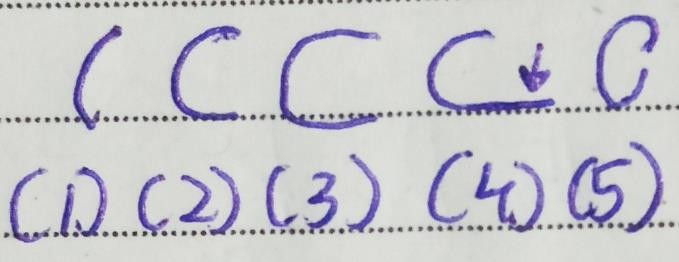 ( C C C ↓ C
(1) (2) (3) (4) (5)